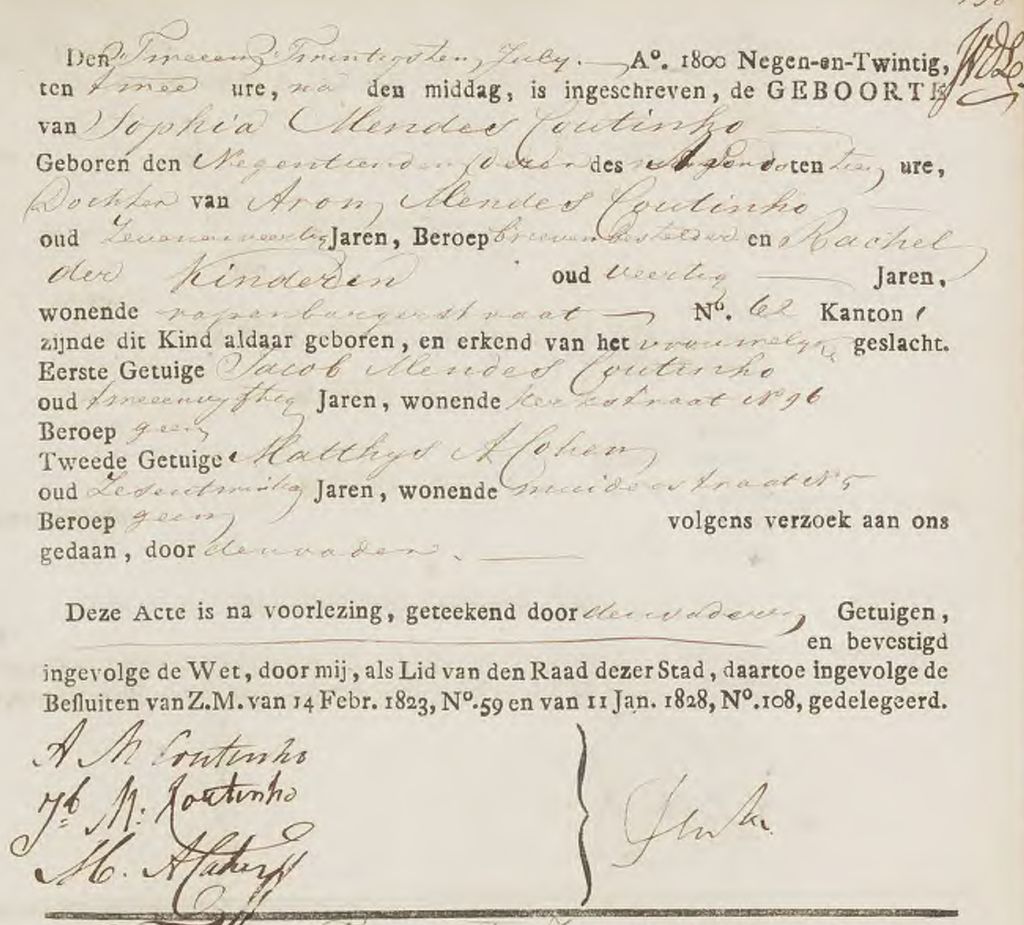 Den Tweeen Twintigsten July. A°. 1800 Negen-en-Twintig,
ten twee ure, na den middag, is ingeschreven, de GEBOORTE
van Sophia Mendes Coutinho
Geboren den Negentienden dezer des ten ure,
Dochter van Aron Mendes Coutinho
oud Zevenenveertig Jaren, Beroep brievenbesteller en Rachel
der Kinderen oud veertig Jaren,
wonende rapenburgerstraat N°. 62 Kanton 1
zijnde dit Kind aldaar geboren, en erkend van het vrouwelyk geslacht.
Eerste Getuige Jacob Mendes Coutinho
oud tweeenvyftig Jaren, wonende kerkstraat N° 96
Beroep geen
Tweede Getuige Matthys A Cohen
oud Zesentwintig Jaren, wonende muiderstraat N° 5
Beroep geen volgens verzoek aan ons
gedaan, door den vader.
Deze Acte is na voorlezing, geteekend door den vader en Getuigen,
en bevestigd
ingevolge de Wet, door mij, als Lid van den Raad dezer Stad, daartoe ingevolge de
Besluiten van Z.M. van 14 Febr. 1823, N°.59 en van 11 Jan. 1828, N°.108, gedelegeerd.
A M Coutinho
Jb M: Koutinho
M. A Cohen